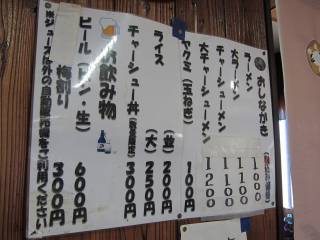 おしながき
ラーメン 1000
大ラーメン 1100
チャーシューメン 1100
大チャーシューメン 1200
ヤクミ(玉ねぎ) 100円
ライス (並) 200円
(大) 250円
チャーシュー丼(数量限定) 300円
お飲み物
ビール(ビン・生) 600円
梅割り 300円
◎※ジュースは外の自動販売機をご利用ください